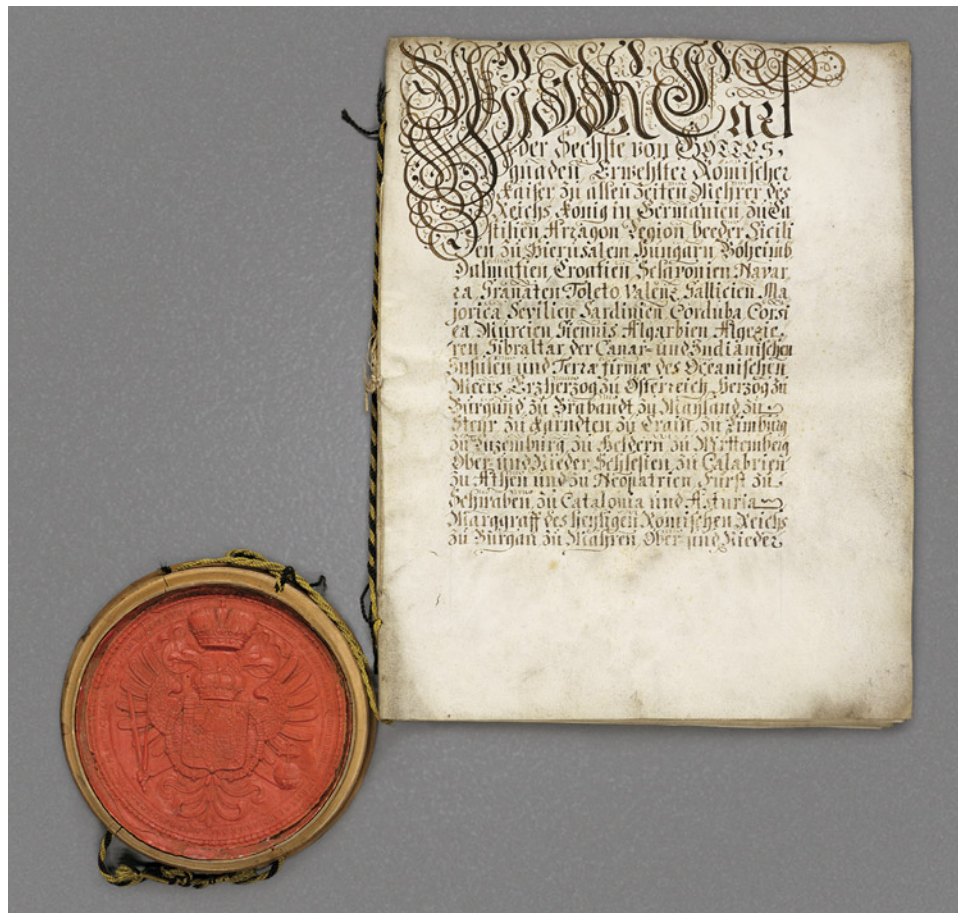 WIR Carl
der Sechste von GOTTES
gnaden Erwehlter Römischer
Kaiser zu allen Zeiten Mehrer des
Reichs König in Germanien zu Ca
stilien Arragon Legion beeder Sicili
en zu Hierusalem Hungarn Böheimb
Dalmatien Croatien Sclavonien Navar
ra Granaten Toleto Valenz Gallicien Ma
jorica Sevilien Sardinien Corduba Corsi
ca Murcien Giennis Algarbien Algezie
ren Gibraltar der Canar- und Indianischen
Insulen und Terræ firmæ des Oceanischen
Meers Erzherzog zu Österreich Herzog zu
Burgund zu Brabandt zu Mayland zu
Steyr zu Kärndten zu Crain zu Limburg
zu Luzemburg zu Geldern zu Württemberg
Ober- und Nieder Schlesien zu Calabrien
zu Athen und zu Neopatrien Fürst zu
Schwaben zu Catalonia und Asturia
Marggraff des heyligen Römischen Reichs
zu Burgau zu Mähren Ober- und Nieder